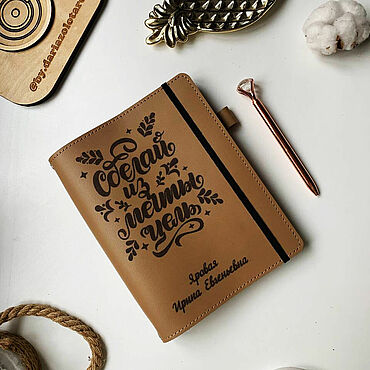 @by.dariazolotar
Сделай
из
мечты
цель
Яровая
Ирина Евгеньевна